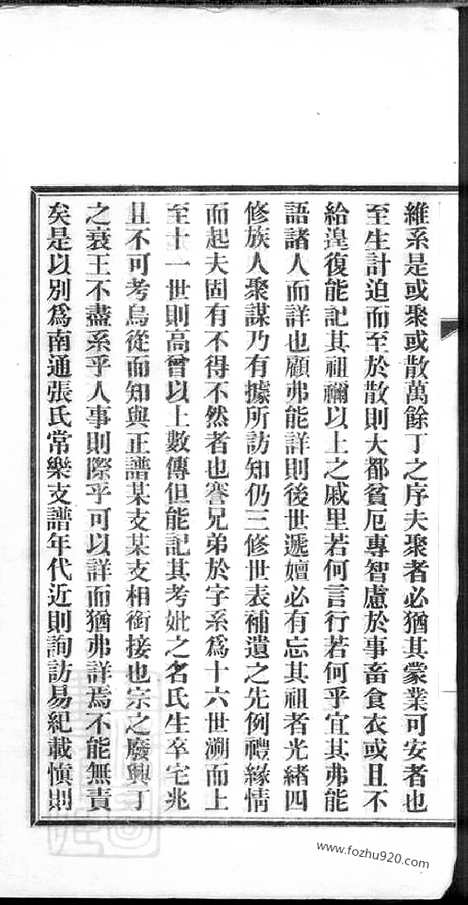 維系是或聚或散萬餘丁之序夫聚者必猶其蒙業可安者也
至生計迫而至於散則大都貧厄專智慮於事畜食衣或且不
給遑復能記其祖禰以上之戚里若何言行若何乎宜其弗能
語諸人而詳也顧弗能詳則後世遞嬗必有忘其祖者光緒四
修族人聚謀乃有據所訪知仍三修世表補遺之先例禮緣情
而起夫固有不得不然者也謇兄弟於字系爲十六世溯而上
至十一世則高曾以上數傳但能記其考妣之名氏生卒宅兆
且不可考烏從而知與正譜某支某支相銜接也宗之廢興丁
之衰王不盡系乎人事則際乎可以詳而猶弗詳焉不能無責
矣是以別爲南通張氏常樂支譜年代近則詢訪易紀載愼則
www.fozhu920.com